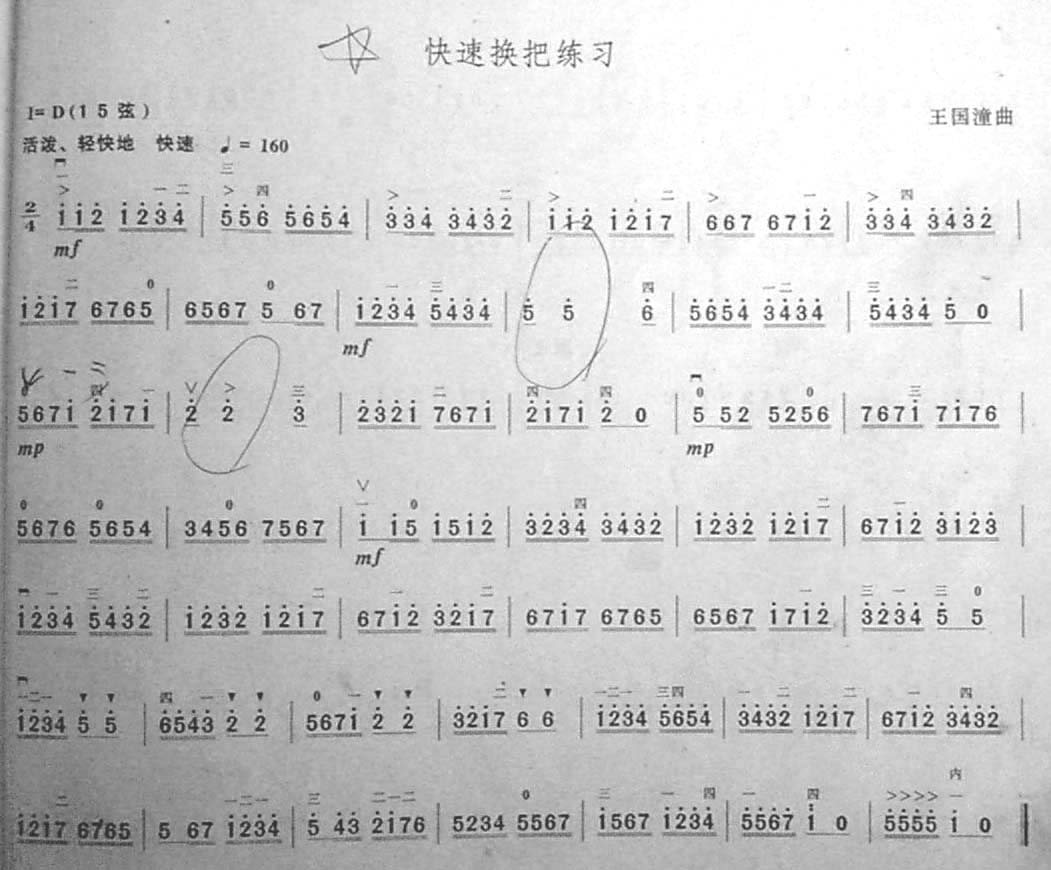 快速换把练习
1= D(1 5 弦)
王国潼曲
活泼、轻快地 快速 ♩= 160
一 一 二 三 四 二 二 一 四
2/4 i̇i̇2̇ i̇2̇3̇4̇ | 5̇5̇6̇ 5̇6̇5̇4̇ | 3̇3̇4̇ 3̇4̇3̇2̇ | i̇i̇2̇ i̇2̇i̇7 | 667 67i̇2̇ | 3̇3̇4̇ 3̇4̇3̇2̇ |
mf
二 0 0 一 三 四 一二 三
i̇2̇i̇7 6765 | 6567 5 67 | i̇2̇3̇4̇ 5̇4̇3̇4̇ | 5̇ 5̇ 6̇ | 5̇6̇5̇4̇ 3̇4̇3̇4̇ | 5̇4̇3̇4̇ 5̇ 0 |
mf
四 一 三 二 四 四 0 0 三
567i̇ 2̇i̇7i̇ | 2̇ 2̇ 3̇ | 2̇3̇2̇i̇ 767i̇ | 2̇i̇7i̇ 2̇ 0 | 5 52 5256 | 767i̇ 7i̇76 |
mp mp
0 0 0 一 0 四 二 一
5676 5654 | 3456 7567 | i̇ i̇5 i̇5i̇2̇ | 3̇2̇3̇4̇ 3̇4̇3̇2̇ | i̇2̇3̇2̇ i̇2̇i̇7 | 67i̇2̇ 3̇i̇2̇3̇ |
mf
一 三 二 二 一 二 一 三 一 三 0
i̇2̇3̇4̇ 5̇4̇3̇2̇ | i̇2̇3̇2̇ i̇2̇i̇7 | 67i̇2̇ 3̇2̇i̇7 | 67i̇7 6765 | 6567 i̇7i̇2̇ | 3̇2̇3̇4̇ 5̇ 5 |
一二一 四 一 0 一 二 一二一 三四 一 二 二 一 四
i̇2̇3̇4̇ 5̇ 5̇ | 6̇5̇4̇3̇ 2̇ 2̇ | 567i̇ 2̇ 2̇ | 3̇2̇i̇7 6 6 | i̇2̇3̇4̇ 5̇6̇5̇4̇ | 3̇4̇3̇2̇ i̇2̇i̇7 | 67i̇2̇ 3̇4̇3̇2̇ |
二 一二一 三 二一二 0 三 一 四 一 四 内 一
i̇2̇i̇7 6765 | 5 67 i̇2̇3̇4̇ | 5̇ 4̇3̇ 2̇i̇76 | 5234 5567 | i̇567 i̇2̇3̇4̇ | 5̇5̇6̇7̇ i̇ 0 | 5̇5̇5̇5̇ i̇ 0